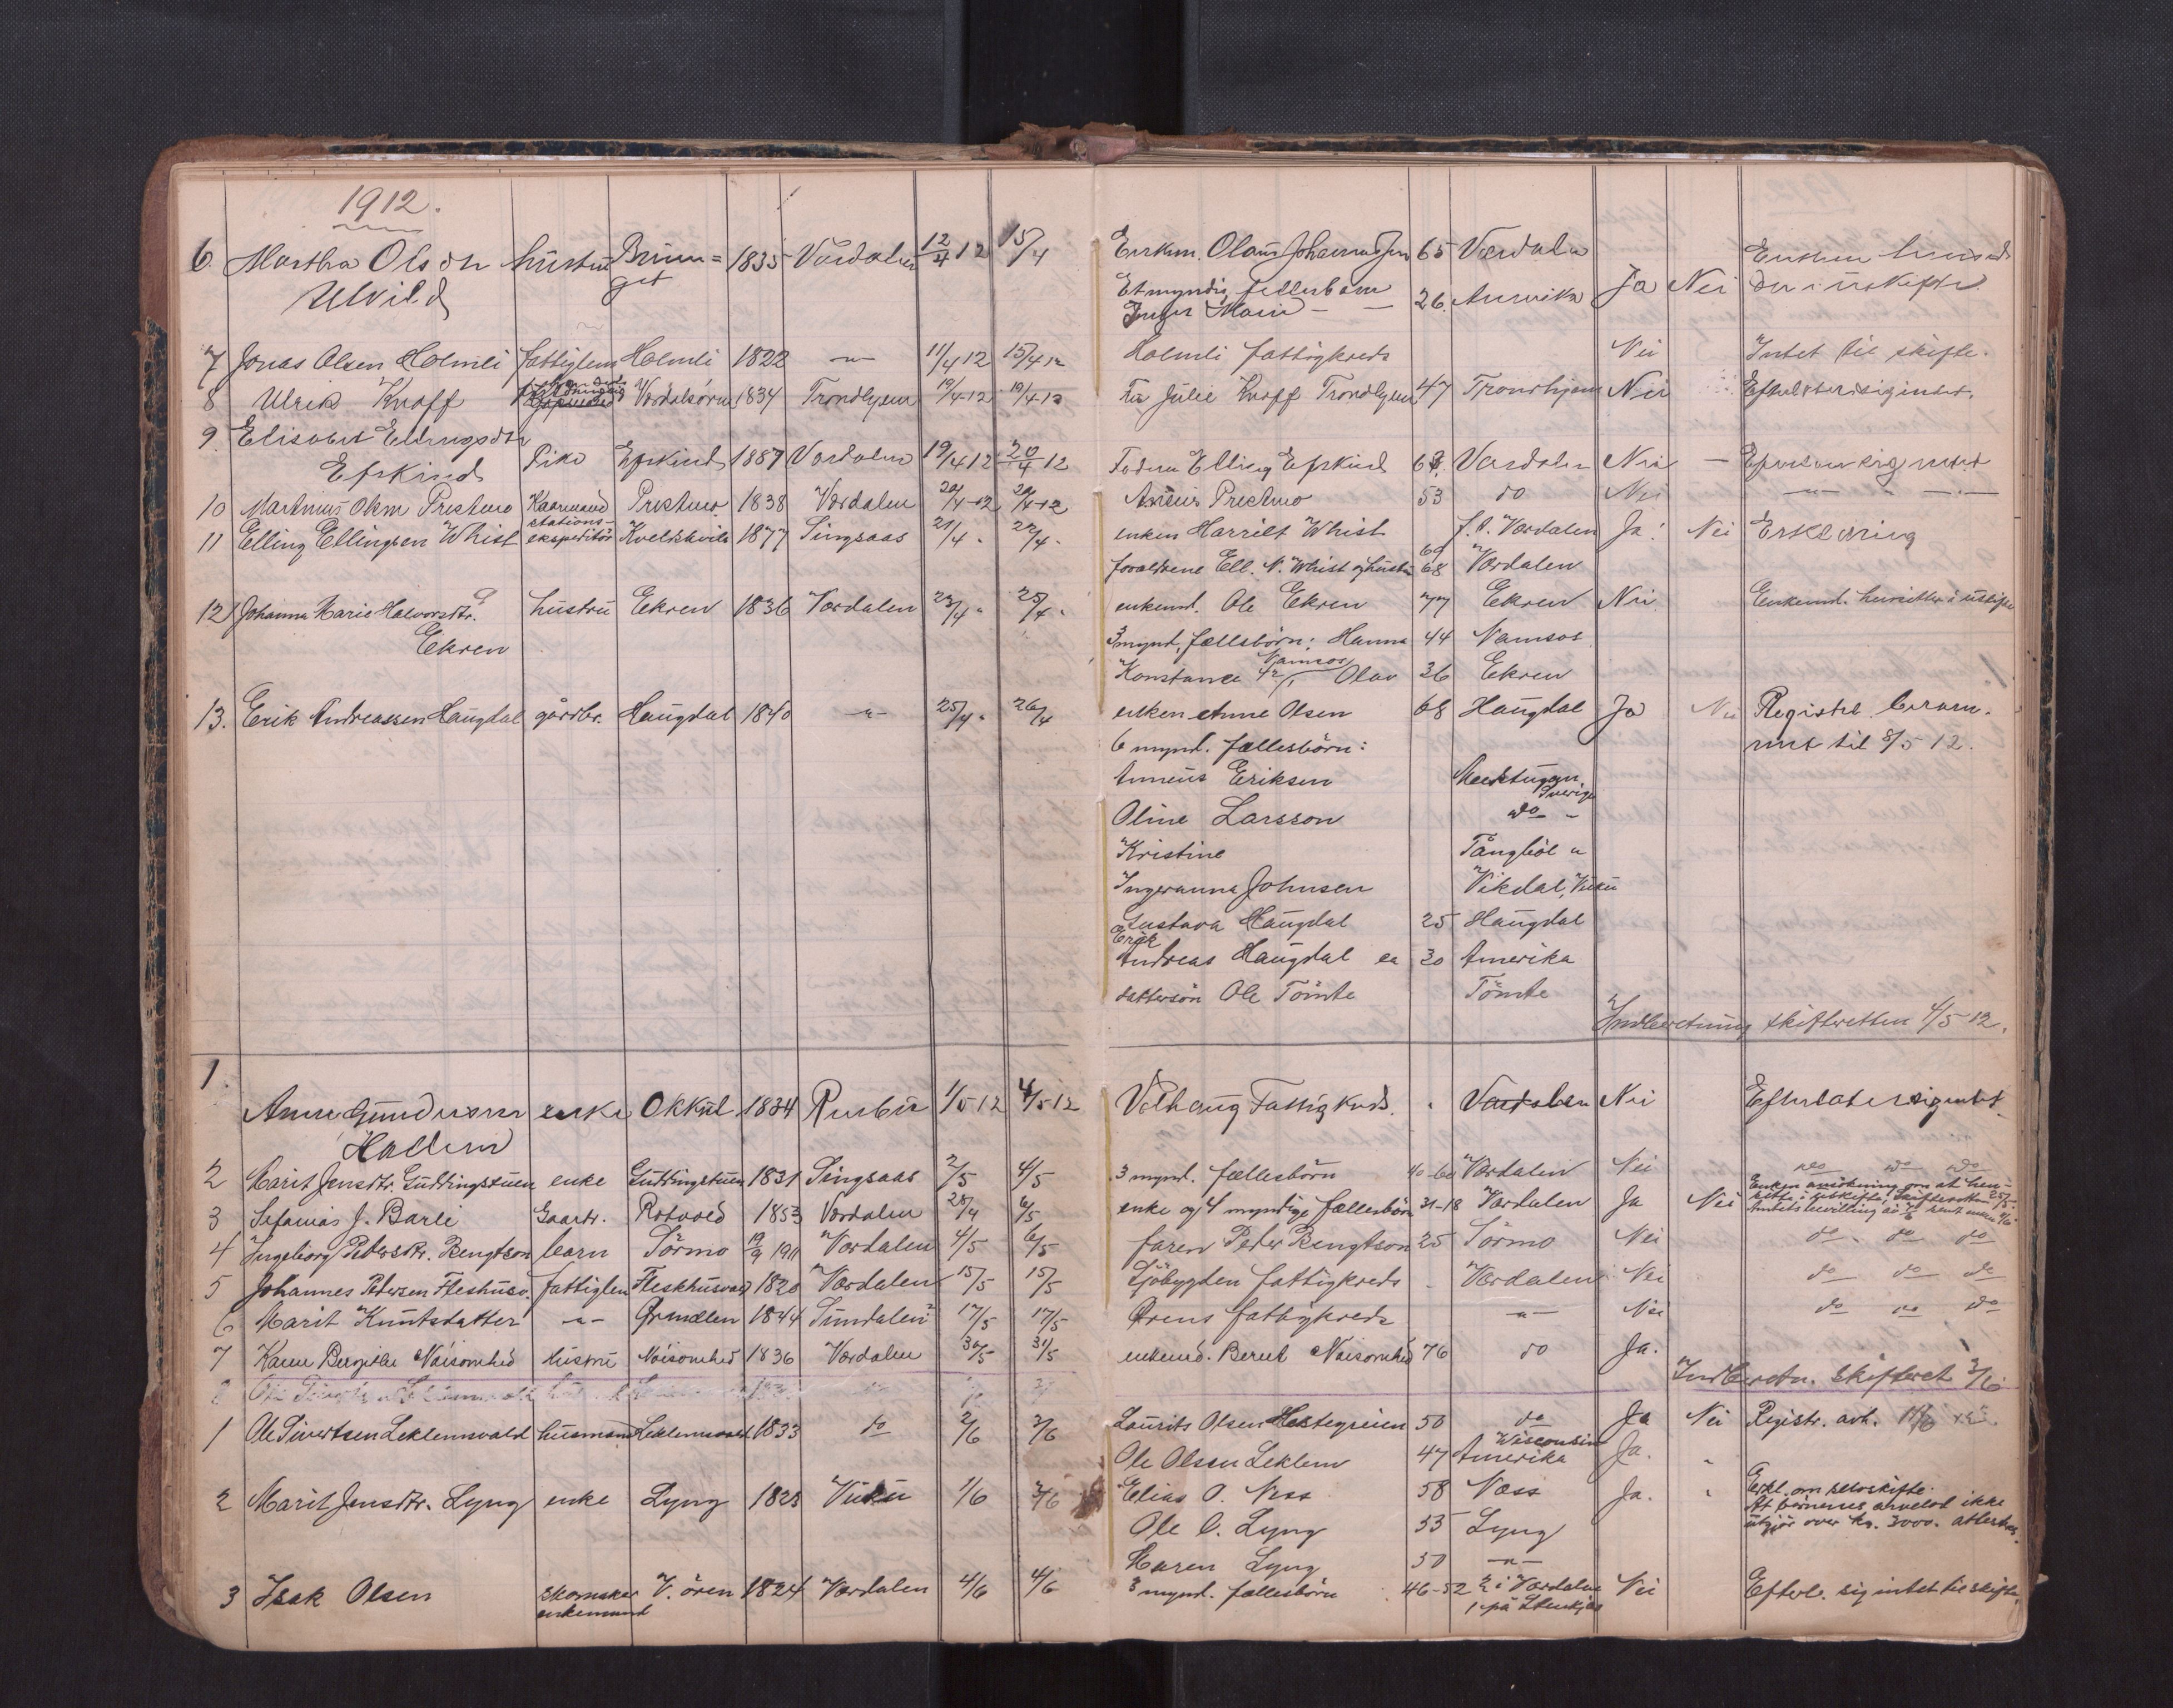 1912.
6. Martha Olsdtr hustru Brun= 1835 Værdalen 12/4 12 15/4 Enkem. Olaus Johannessen 65 Værdalen
Ulvild get Et myndig fællesbarn Ja Nei
Inger Marie — — 26 Amerika
7 Jonas Olsen Holmli fattiglem Holmli 1822 -"- 11/4 12 15/4 12 Holmli fattigkreds Nei Intet til skifte.
8 Ulrik Knoff Værdalsøren 1834 Trondhjem 19/4-12 19/4-12 Fra Julie Knoff Trondhjem 47 Trondhjem Nei Efterlater sig intet.
9. Elisabet Ellingsdtr
Efskind Pike Efskind 1887 Værdalen 19/4 12 20/4 12 Faderen Elling Efskind Værdalen Nei —
10 Martinus Olsen Prestmo Kaarmand Prestmo 1838 Værdalen 20/4-12 20/4-12 Anneus Prestmo 53 do Nei -"- -"-
11 Elling Ellingsen Whist stations-ekspeditør Kvelskvile 1877 Singsaas 21/4 - 22/4 - enken Harriet Whist f.t. Værdalen Ja! Nei Erklæring
forældrene Ell. N. Whist og hustru 69 68 Værdalen
12) Johanna Marie Halvorsdtr. hustru Ekren 1836 Værdalen 23/4 - 25/4 - enkemd. Ole Ekren 77 Ekren Nei. Enkemd. hensitter i uskifte
Ekren 3 mynd. fællesbørn: Hanna 44 Namsos
Konstance 42 Namsos Olav 36 Ekren
13. Erik Andreassen Haugdal gårdbr. Haugdal 1840 -"- 25/4 - 26/4 enken Anne Olsen 68 Haugdal Ja Nei Registr. beram-
6 mynd. fællesbørn: met til 8/5 12.
Anneus Eriksen Meckstugan, Sverige
Oline Larsson do -
Kristine Tångböl "
Ingeranna Johnsen Vikdal, Vuku
Gustava Haugdal 25 Haugdal
Erik
Andreas Haugdal ca 30 Amerika
dattersøn Ole Tömte Tömte
Indberetning skifteretten 4/5 12.
1. Anne Gundersen enke Okkul 1834 Rinbu 1/5 12 4/5 12 Volhaug Fattigkreds. - Værdalen Nei Efterlater sig intet.
Hallem
2 Marit Jensdtr. Guddingstuen enke Guddingstuen 1831 Singsaas 2/5 4/5 3 mynd. fællesbørn 40-60 Værdalen Nei do do do
3 Sefanias J. Barli Gaardbr. Rotvold 1853 Værdalen 28/4 6/5 enke og 4 myndige fællesbørn 31-18 Værdalen Ja Nei Enken ansökning om at hen-
sitte i uskifte, Skifteretten 25/5-
4 Ingeborg Petersdtr. Bengtson barn Törmo 19/9 1911 Værdalen 4/5 6/5 faren Peder Bengtson 25 Törmo Nei do do do
5 Johannes Petersen Fleshusv. fattiglem Fleskhusvald 1820 Værdalen 15/5 15/5 Sjöbygden fattigkreds - Værdalen Nei do do do
6 Marit Knutsdatter -"- Ørmælen 1844 Sundalen? 17/5 17/5 Ørens fattigkreds -"- Nei do do do
7 Karen Bergitte Nöisomhed hustru Nöisomhed 1836 Værdalen 30/5 31/5 enkemd. Bernt Nöisomhed 76 do Ja.
Indberetn. skifteret 3/6
1 Ole Sivertsen Leklemsvald husmand Leklemsvald 1833 do 2/6 3/6 Laurits Olsen Hestegreien 50 do Ja Nei Registr. avh. 11/6
Ole Olsen Leklem 47 Wisconsin Amerika Ja. "
2 Marit Jensdtr. Lyng enke Lyng 1823 Vuku 1/6 3/6 Elias O. Ness 58 Næss Ja. " Erkl. om selvskifte.
At börnenes arvelod ikke
Ole O. Lyng 53 Lyng utgjör over kr. 3000. attesteres.
Karen Lyng 50 -"-
3 Isak Olsen skomaker enkemand V.ören 1824 Værdalen 4/6 4/6 3 mynd. fællesbørn 46-52 2 i Værdalen Nei Efterl. sig intet til skifte.
1 på Stenkjær